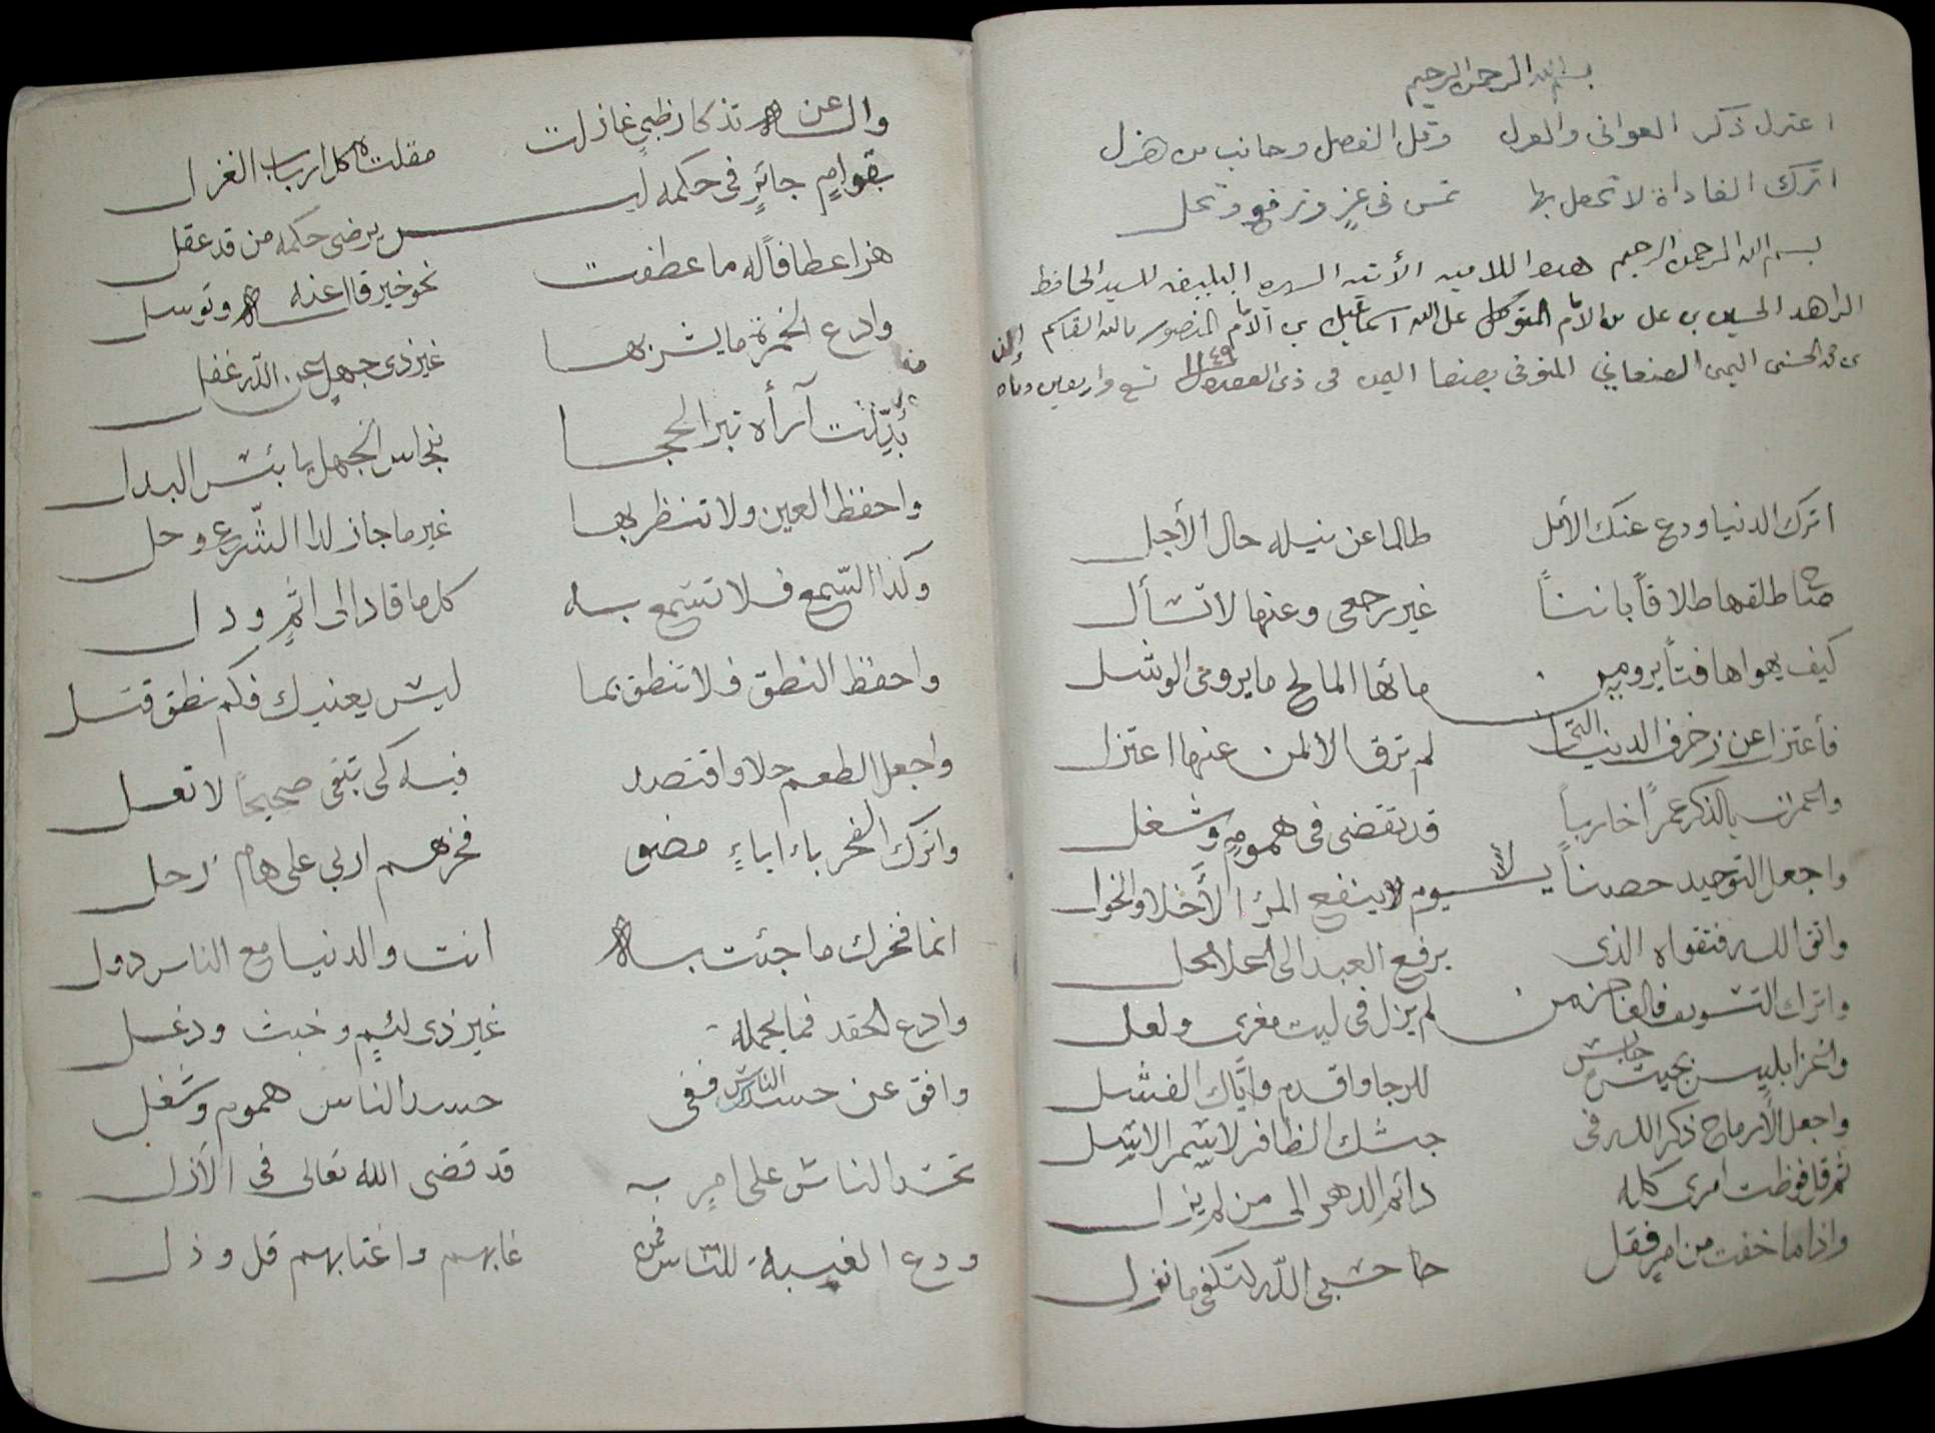 بسم الله الرحمن الرحيم
اعتزل ذكر الغواني والغزل وقل الفصل وجانب من هزل
اترك الغادة لا تحفل بها تمس في عز وترفع وتجل
بسم الله الرحمن الرحيم هذه اللاميه الأتيه البليغه للسيد الحافظ
الزاهد الحسين بن علي بن الامام المتوكل على الله اسماعيل بن الامام المنصور بالله القاسم
بن محمد الحسني اليمني الصنعاني المتوفى بصنعا اليمن في ذي القعده ١١٤٩ تسع واربعين ومائه
اترك الدنيا ودع عنك الأمل طالما عن نيله حال الأجل
طلقها طلاقاً بائناً غير رجعى وعنها لا تسأل
كيف يهواها فتاً يروي من مائها المالح ما يروي الوشل
فأعتزل عن زخرف الدنيا التي لم ترق الا لمن عنها اعتزل
واعمرن بالذكر عمراً خارباً قد تقضى في همومٍ وشغل
واجعل التوحيد حصناً ليوم لا ينفع المرء الأخلا والخول
واتق الله فتقواه الذي يرفع العبد الى اعلا محل
واترك التسويف فالعاجز من لم يزل في ليت مغرى ولعل
واغز ابليس بجيش للرجا واقدم واياك الفشل
واجعل الأرماح ذكر الله في جيشك الظافر لا سمر الاسل
ثم قل فوضت امري كله دائم الدهر الى من لم يزل
واذا ما خفت من امرٍ فقل حاحسبي الله لتكفى ما نزل
واله عن تذكار ظبيٍ غازلت مقلتاه كل ارباب الغزل
بقوامٍ جائرٍ في حكمه ليس يرضى حكمه من قد عقل
هز اعطافاً له ما عطفت نحو خير قا اعنه وتوسل
وادع الخمرة ما يشربها غير ذي جهلٍ عن الله غفل
بُدّلت آرأه تبر الحجا بنحاس الجهل يا بئس البدل
واحفظ العين ولا تنظر بها غير ما جاز لدا الشّرع وحل
وكذا السّمع فلا تسمع به كل ما قاد الى اثمٍ ودل
واحفظ النطق فلا تنطق بما ليس يعنيك فكم نطق قتل
واجعل الطعم حلا واقتصد فيه كي تبقى صحيحاً لا تعل
واترك الفخر باباءٍ مضو فخرهم اربى على هام زحل
انما فخرك ما جئت به انت والدنيا مع الناس دول
وادع الحقد فما يحمله غير ذي لئمٍ وخبث ودغل
وافق عن حسد الناس ففي حسد الناس هموم وشغل
تحسد الناس على امرٍ به قد قضى الله تعالى في الأزل
ودع الغيبة للناس فمن عابهم واغتابهم قل وذل